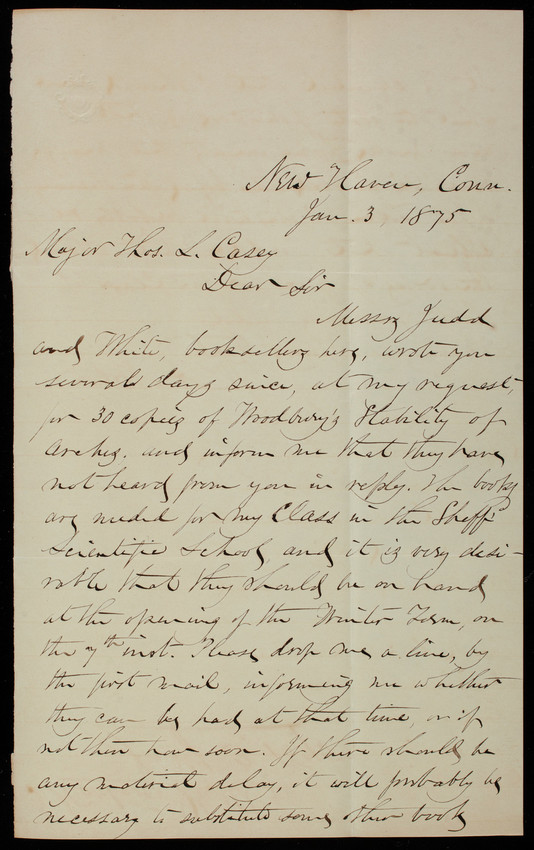 New Haven, Conn.
Jan. 3, 1875
Major Thos. L. Casey
Dear Sir
Messrs Judd
and White, booksellers here, wrote you
several days since, at my request,
for 30 copies of Woodbury's Stability of
Arches. and inform me that they have
not heard from you in reply. The books
are needed for my Class in the Sheff.
Scientific School, and it is very desi-
rable that they should be on hand
at the opening of the Winter Term, on
the 7th inst. Please drop me a line, by
the first mail, informing me whether
they can be had at that time, or if
not then how soon. If there should be
any material delay, it will probably be
necessary to substitute some other book